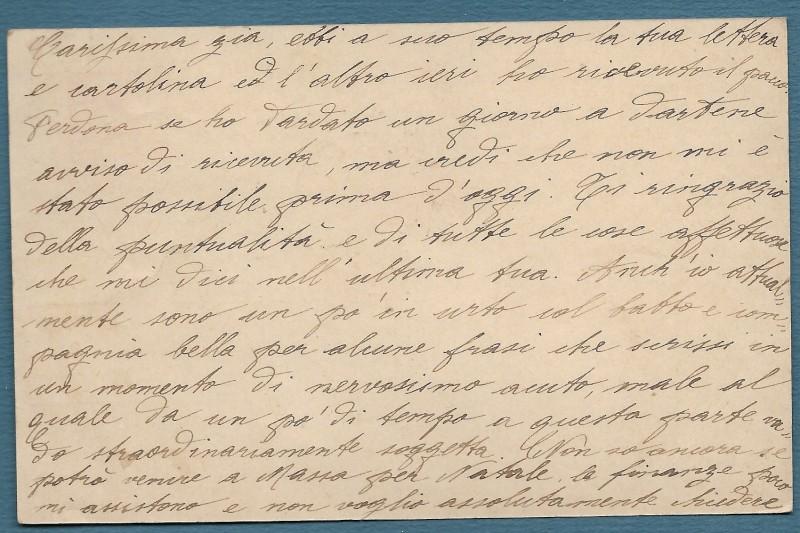 Carissima zia, ebbi a suo tempo la tua lettera
e cartolina ed l'altro ieri ho ricevuto il pacco.
Perdona se ho tardato un giorno a dartene
avviso di ricevuta, ma credi che non mi è
stato possibile prima d'oggi. Ti ringrazio
della puntualità e di tutte le cose affettuose
che mi dici nell'ultima tua. Anch'io attual=
mente sono un po' in urto col babbo e com=
pagnia bella per alcune frasi che scrissi in
un momento di nervosismo acuto, male al
quale da un po' di tempo a questa parte va=
do straordinariamente soggetta. Non so ancora se
potrò venire a Massa per Natale, le finanze poco
mi assistono e non voglio assolutamente chiedere